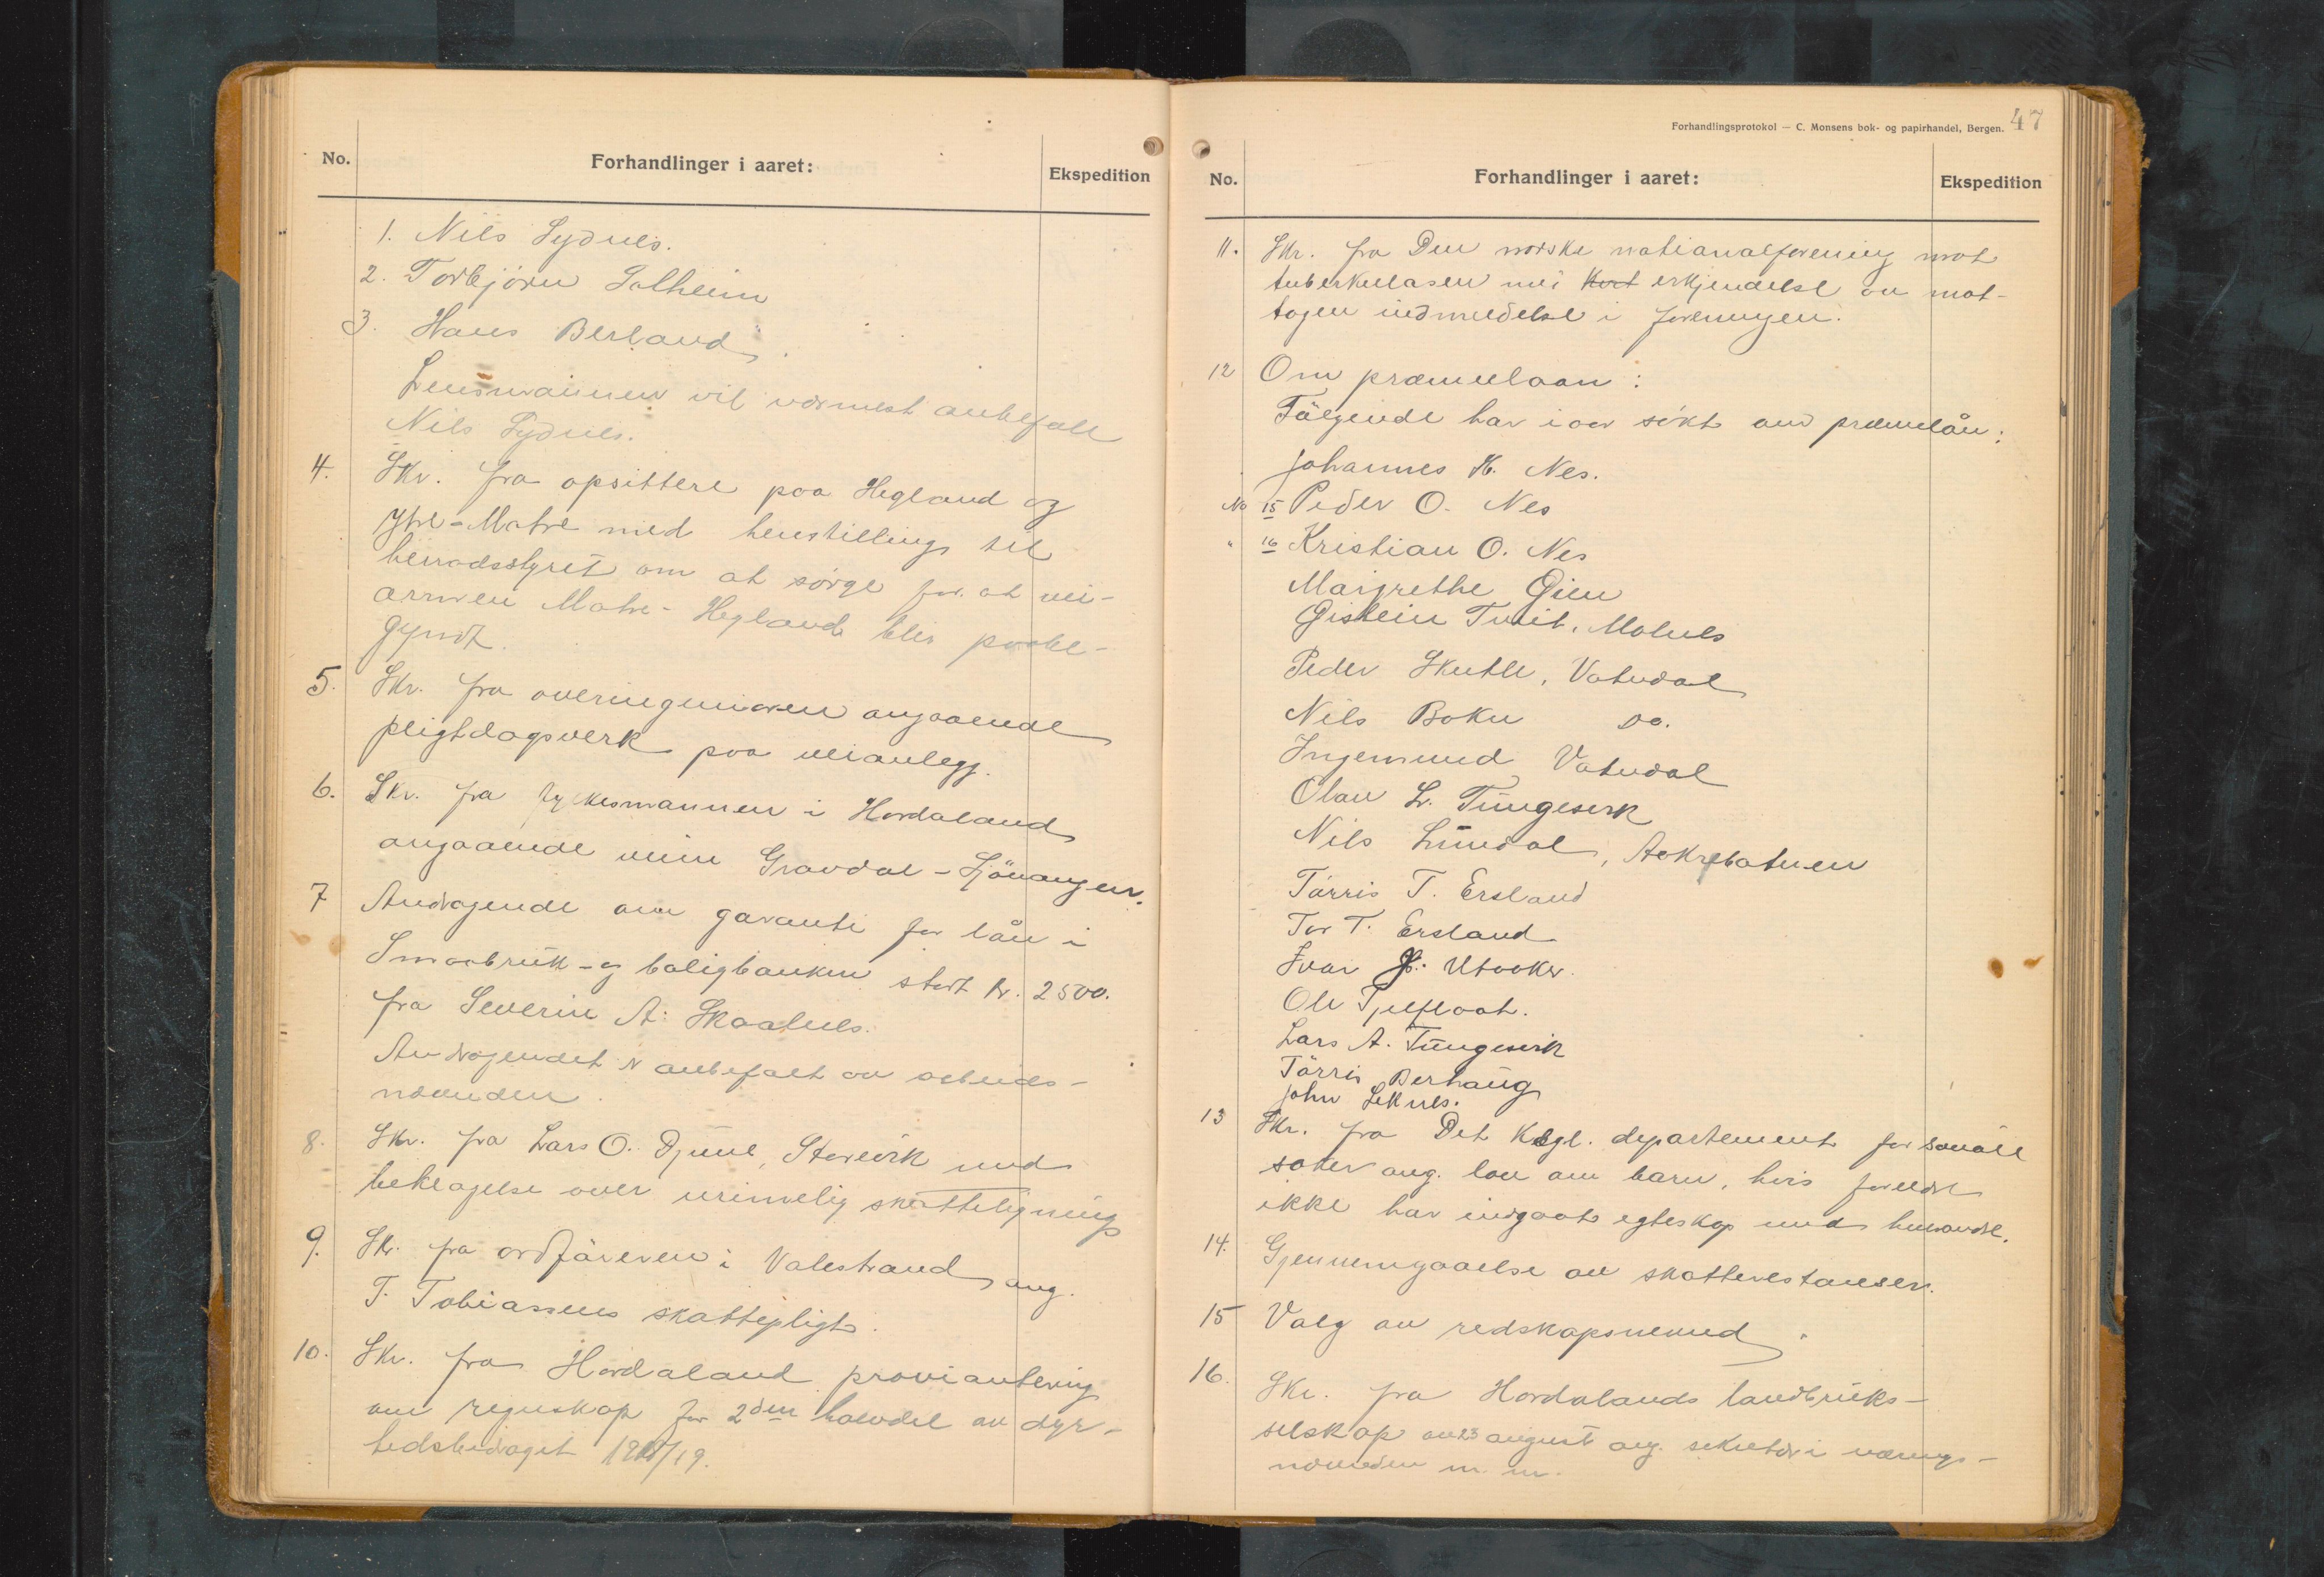 No.
Forhandlinger i aaret:
Ekspedition
1. Nils Sydnes.
2. Torbjörn Solheim
3. Hans Berland.
Lensmannen vil nærmest anbefale
Nils Sydnes.
4. Skr. fra opsittere paa Hegland og
Ytre-Matre med henstilling til
herradsstyret om at sörge for at vei-
armen Matre-Hegland blir paabe-
gyndt.
5. Skr. fra overingeniören angaaende
pligtdagsverk paa veianlegg.
6. Skr. fra fylkesmannen i Hordaland
angaaende veien Gravdal-Sjöuangen.
7 Andragende om garanti for lån i
Smaabruk- og boligbanken stort kr. 2500.
fra Severin A. Skaalnes.
Andragendet er anbefalt av arbeids-
nævnden.
8. Skr. fra Lars O. Djune, Storevik med
beklagelse over urimelig skatteligning
9. Skr. fra ordföreren i Valestrand ang.
T. Tobiassens skattepligt.
10. Skr. fra Hordaland proviantering
om regnskap for 2den halvdel av dyr-
tidsbidraget 1918/19.
Forhandlingsprotokol — C. Monsens bok- og papirhandel, Bergen. 47
No.
Forhandlinger i aaret:
Ekspedition
11. Skr. fra Den norske nationalforening mot
tuberkulosen med erkjendelse av mot-
tagen indmeldelse i foreningen.
12 Om præmielaan:
Fölgende har i aar sökt om præmielån:
Johannes K. Nes.
No 15 Peder O. Nes
" 16 Kristian O. Nes
Margrethe Öien
Öistein Tveit, Molnes
Peder Skutle, Vatndal
Nils Bokn do.
Ingemund Vatndal
Olav L. Tungesvik
Nils Lundal, Aakrebotnen
Törris T. Ersland
Tor T. Ersland
Ivar Utaaker.
Ole Tjelflaat.
Lars A. Tungesvik
Törris Berhaug
John Leknes.
13 Skr. fra Det Kgl. departement for sociale
saker ang. lov om barn, hvis foreldre
ikke har indgaat egteskap med hinandre.
14. Gjennemgaaelse av skatterestanser.
15 Valg av redskapsnemnd.
16. Skr. fra Hordalands landbruks-
selskap av 23 august ang. sekretær i nærings-
nævnden m. m.